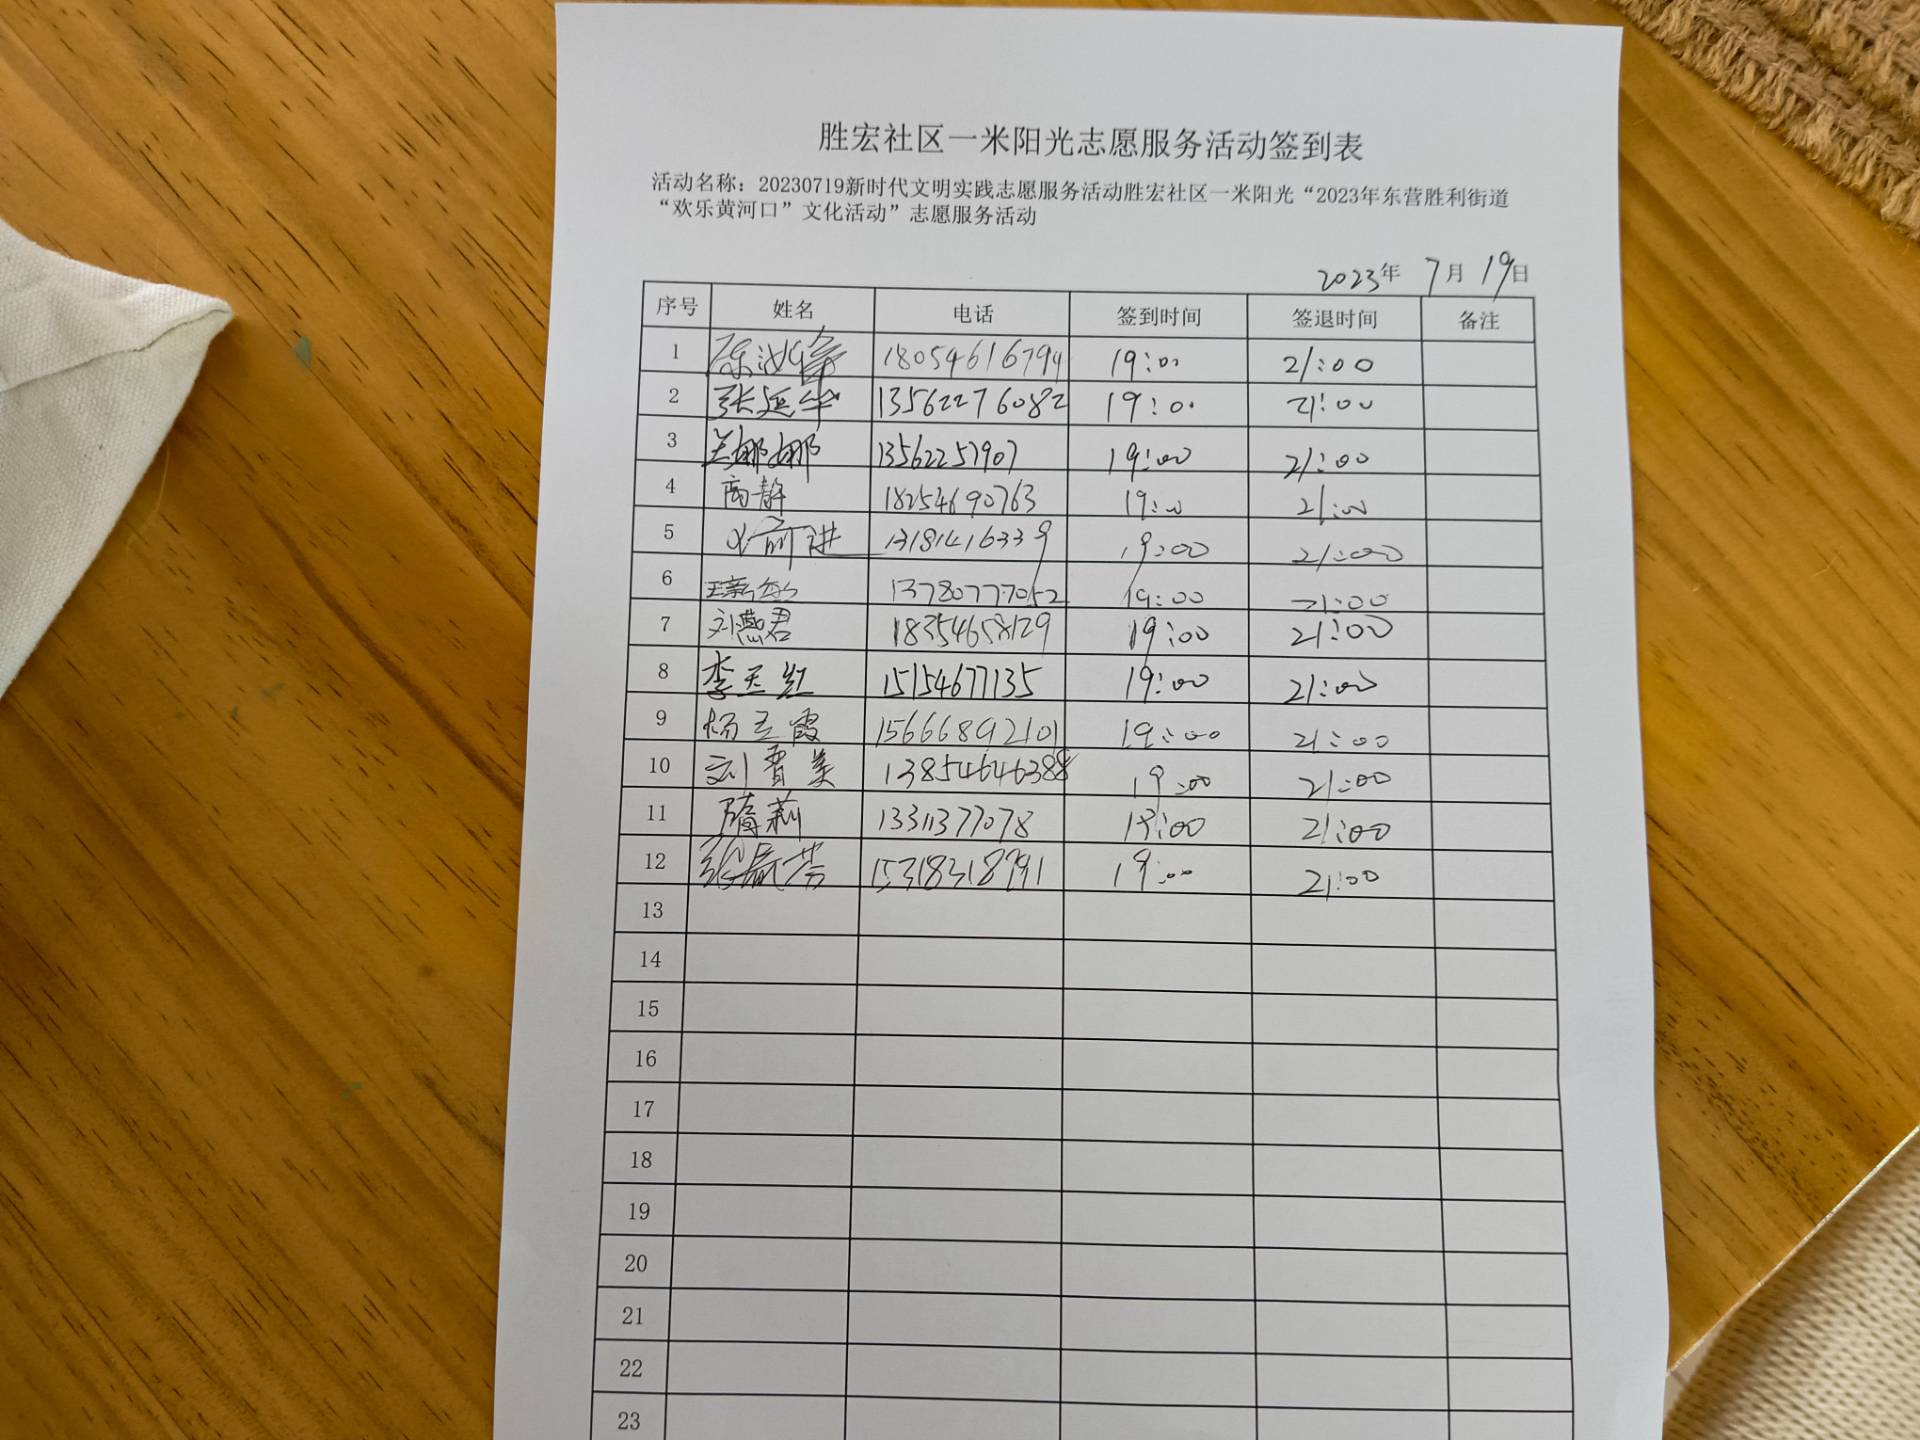 胜宏社区一米阳光志愿服务活动签到表
活动名称：20230719新时代文明实践志愿服务活动胜宏社区一米阳光“2023年东营胜利街道
“欢乐黄河口”文化活动”志愿服务活动
2023年 7月 19日
序号 姓名 电话 签到时间 签退时间 备注
1 18054616794 19:00 21:00
2 张延华 13562276082 19:00 21:00
3 兰娜娜 13562257907 19:00 21:00
4 高静 18254690763 19:00 21:00
5 前进 13181416339 19:00 21:00
6 13780777052 19:00 21:00
7 刘燕君 18354658129 19:00 21:00
8 李玉红 15154677135 19:00 21:00
9 杨玉霞 15666892101 19:00 21:00
10 刘 美 13854646388 19:00 21:00
11 隋莉 13311377078 19:00 21:00
12 张 芬 19:00 21:00
13
14
15
16
17
18
19
20
21
22
23